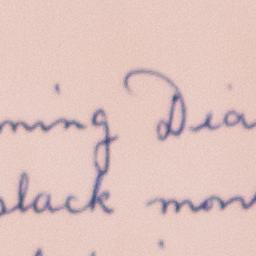 ning Dia
black mon